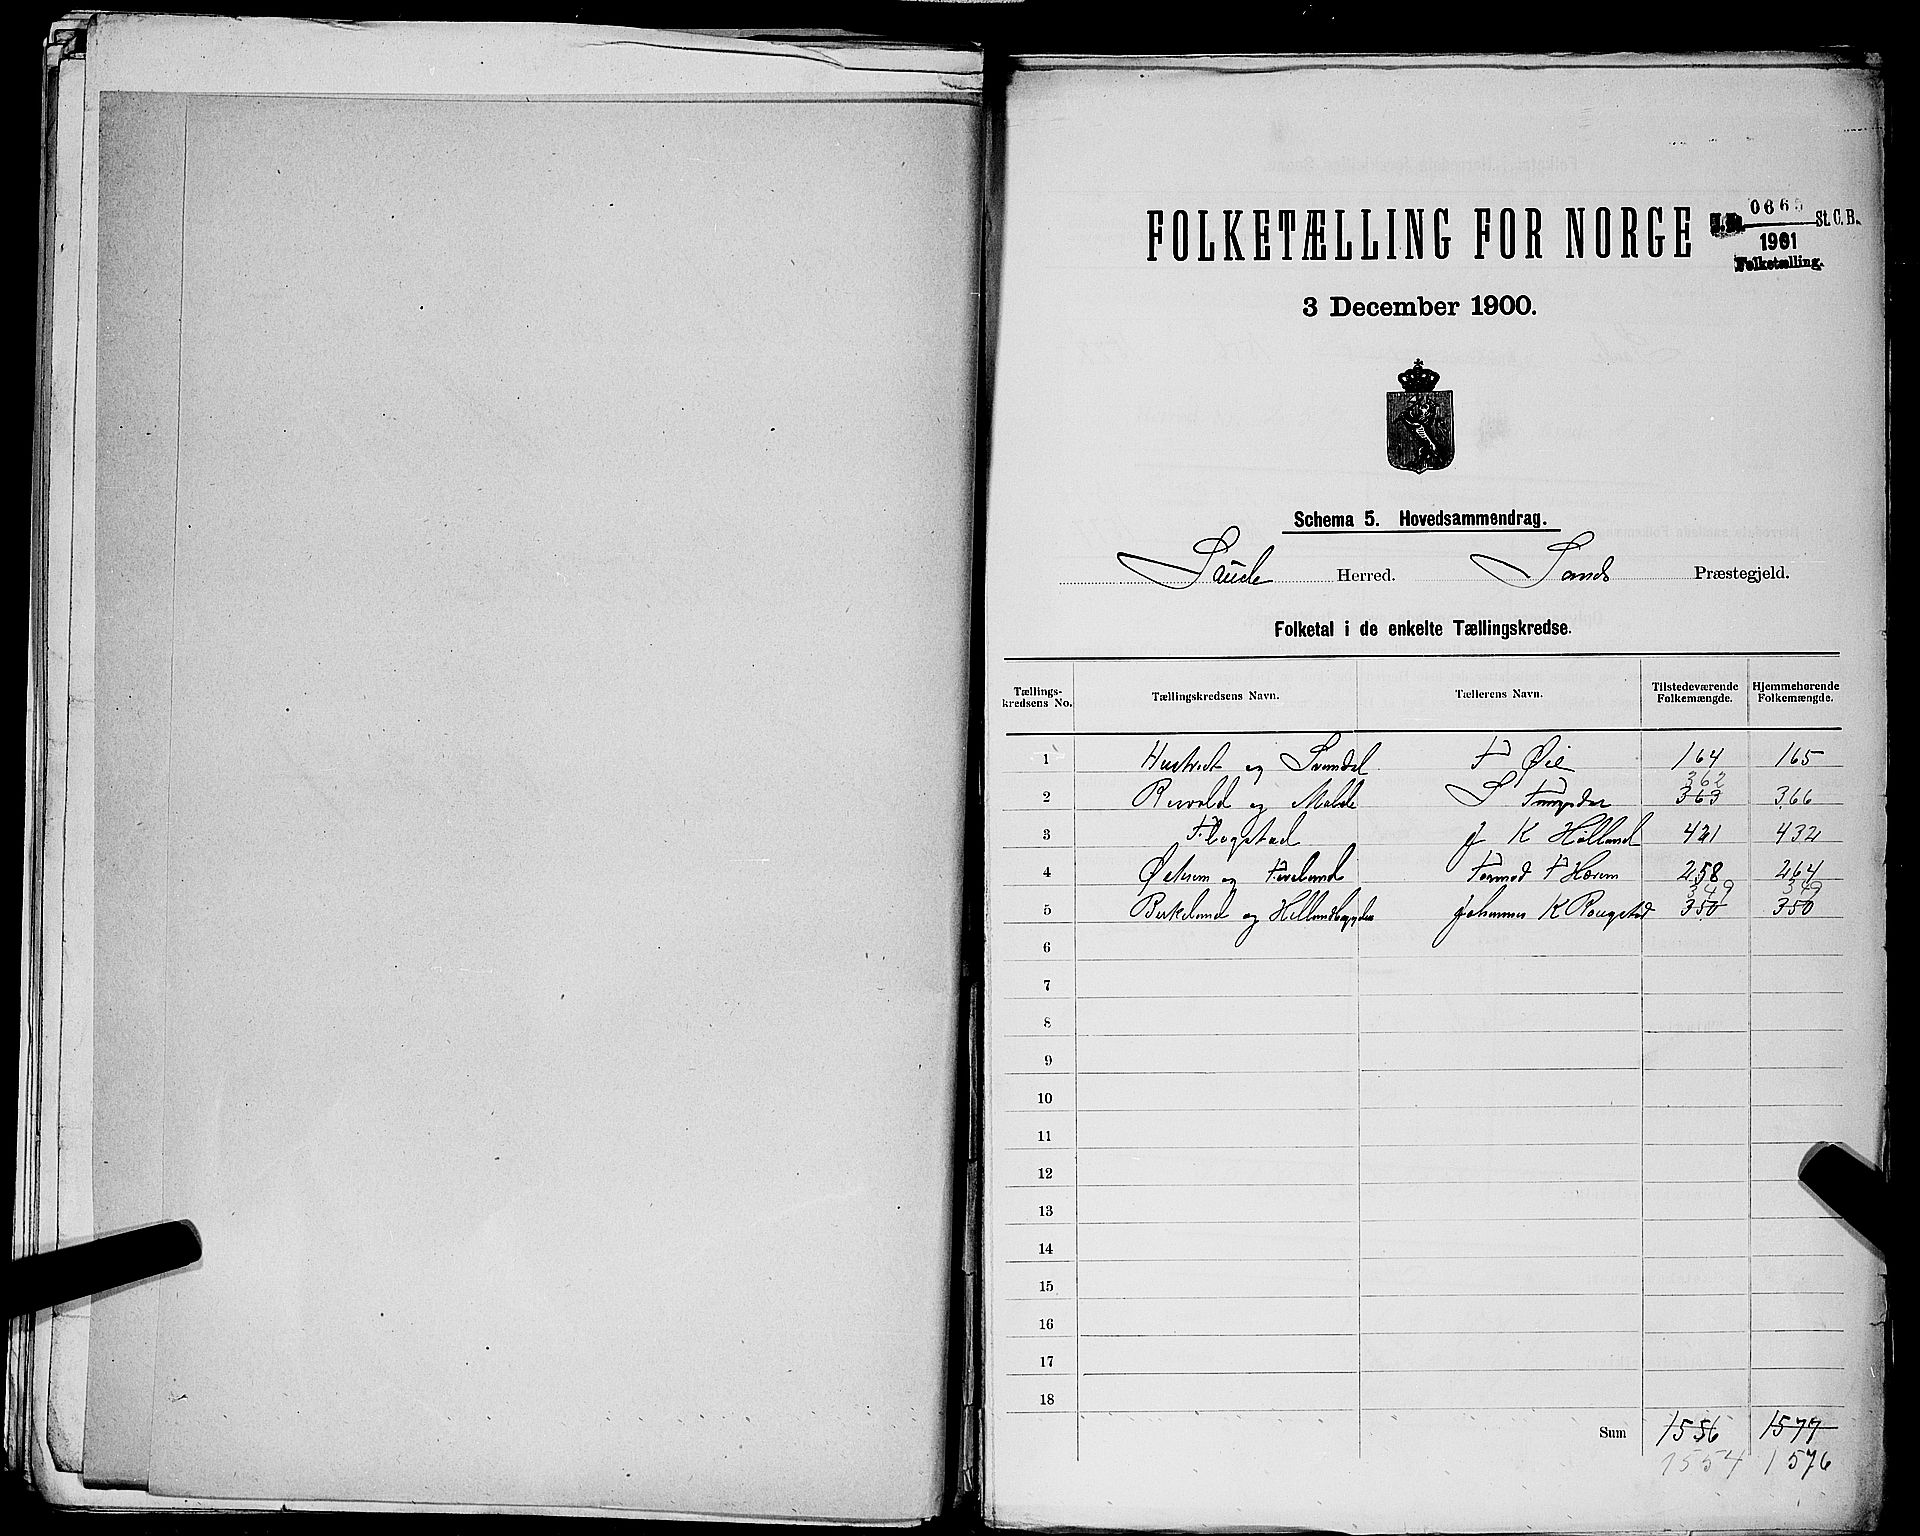 FOLKETÆLLING FOR NORGE
St. C. B.
1901
Folketælling.
3 December 1900.
Schema 5. Hovedsammendrag.
Saude Herred. Sands Præstegjeld.
Folketal i de enkelte Tællingskredse.
Tællingskredsens No. Tællingskredsens Navn. Tællerens Navn. Tilstedeværende Folkemængde. Hjemmehørende Folkemængde.
1 Hustveit og Svandal T Øie 164 165
362
2 Risvold og Malde S 363 366
3 Flogstad J K Hølland 421 432
4 og Tveland Tormod T Hærem 258 264
349 349
5 Birkeland og Hellandsbygden Johannes K Rougstad 350 350
6
7
8
9
10
11
12
13
14
15
16
17
18
Sum 1556 1577
1554 1576